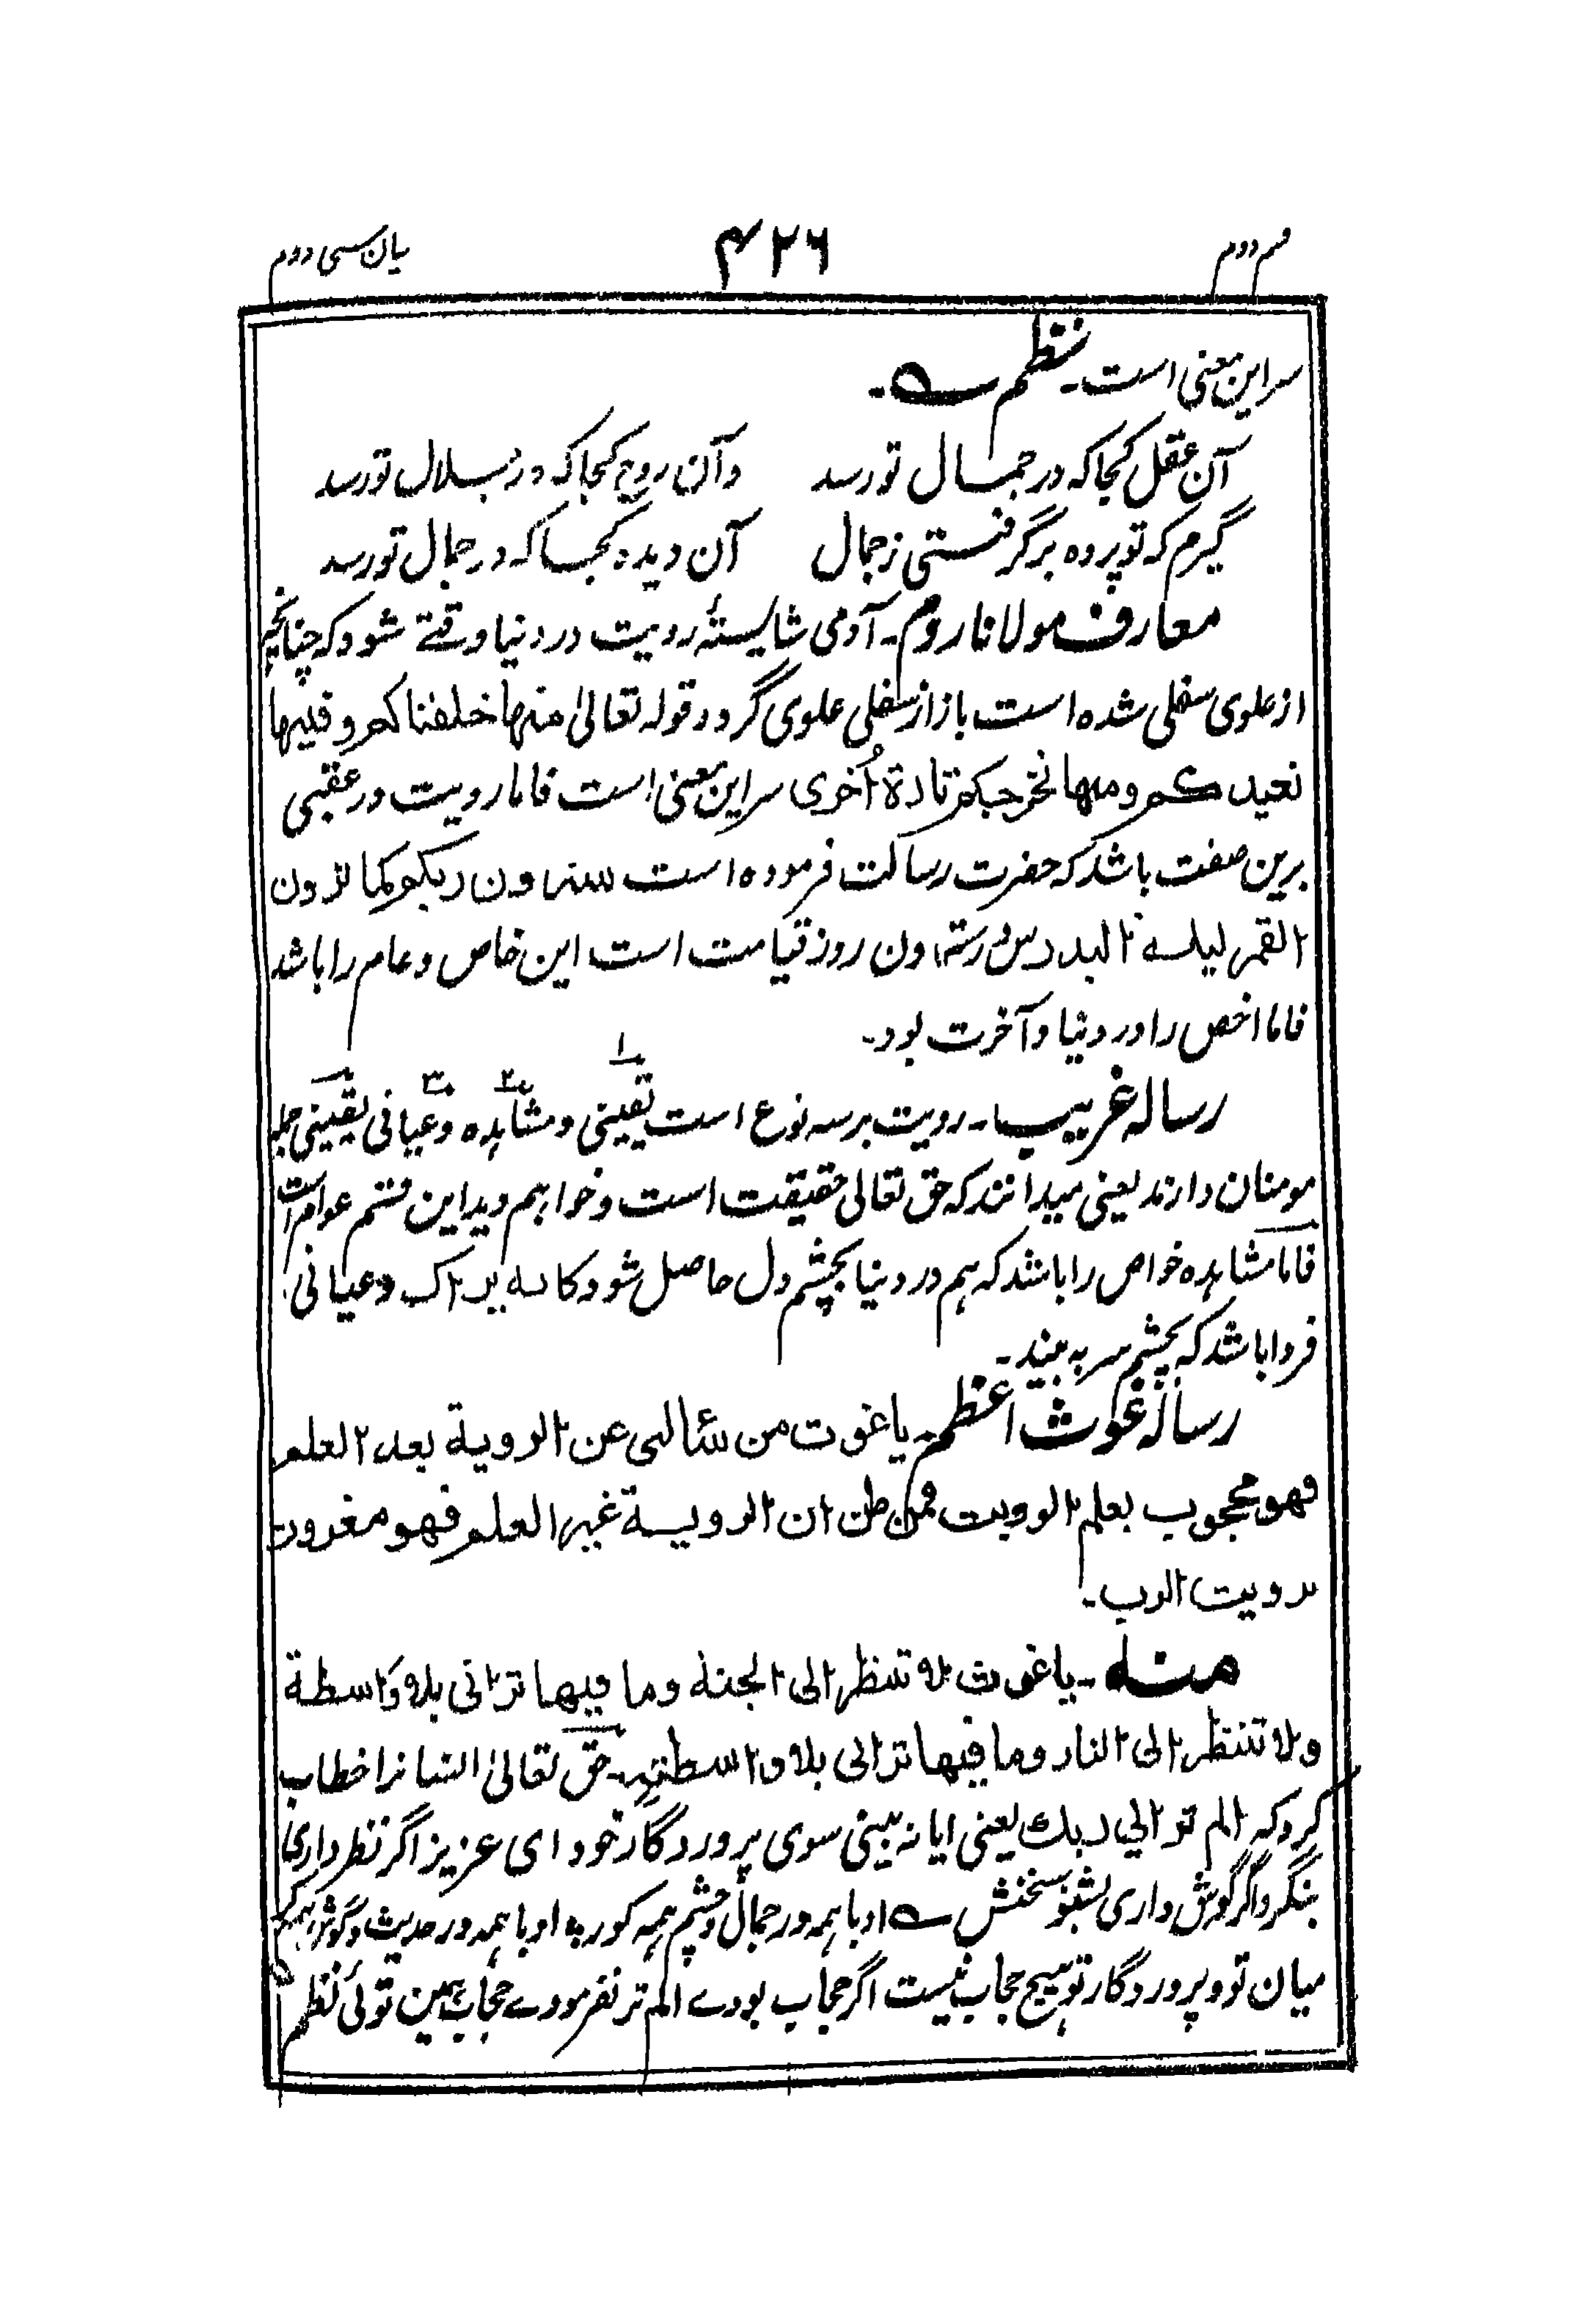 قسم دوم ۴۲۶ بیان سی دوم
سر این معنی است۔ نظم ؎۔
آن عقل کجا که در جمال تو رسد وآن روح کجا که در جلال تو رسد
گیرم که تو پرده برگرفتی ز جمال آن دیده کجا که در جمال تو رسد
معارف مولانا روم۔ آدمی شایستۂ رویت در دنیا وقتے شود که چنانچه
از علوی سفلی شده است باز از سفلی علوی گردد قوله تعالیٰ منها خلقناکم و فیها
نعیدکم ومنها نخرجکم تارة اُخری سر این معنی است فاما رویت در عقبی
برین صفت باشد که حضرت رسالت فرموده است سترون ربکم کما ترون
القمر لیلة البدر سترون روز قیامت است این خاص و عام را باشد
فاما اخص را در دنیا و آخرت بود۔
رساله غریب۔ رویت بر سه نوع است یقینی و مشاهده و عیانی یقینی جمله
مومنان دارند یعنی میدانند که حق تعالی حقیقت است و خواهم دید این قسم عوام است
فاما مشاهده خواص را باشد که هم در دنیا بچشم دل حاصل شود کانه یراک و عیانی
فردا باشد که بچشم سر به بیند۔
رسالۂ غوث اعظم۔ یا غوث من سألنی عن الرویة بعد العلم
فهو محجوب بعلم الرویت فمن ظن ان الرویة غیر العلم فهو مغرور
برویت الرب۔
منه۔ یا غوث لا تنظر الی الجنة وما فیها ترانی بلا واسطة
ولا تنظر الی النار وما فیها ترانی بلا واسطة۔ حق تعالیٰ انسانرا خطاب
کرد که الم تر الی ربک یعنی ایا نه بینی سوی پروردگار خود ای عزیز اگر نظر داری
بنگر و اگر گوش داری بشنو سخنش ؎ او با همه در جمال و چشم همه کور ؞ او با همه در حدیث و گوش همه کر
میان تو و پروردگار تو هیچ حجاب نیست اگر حجاب بودے الم تر نفرمودے حجاب همین توئی نظم